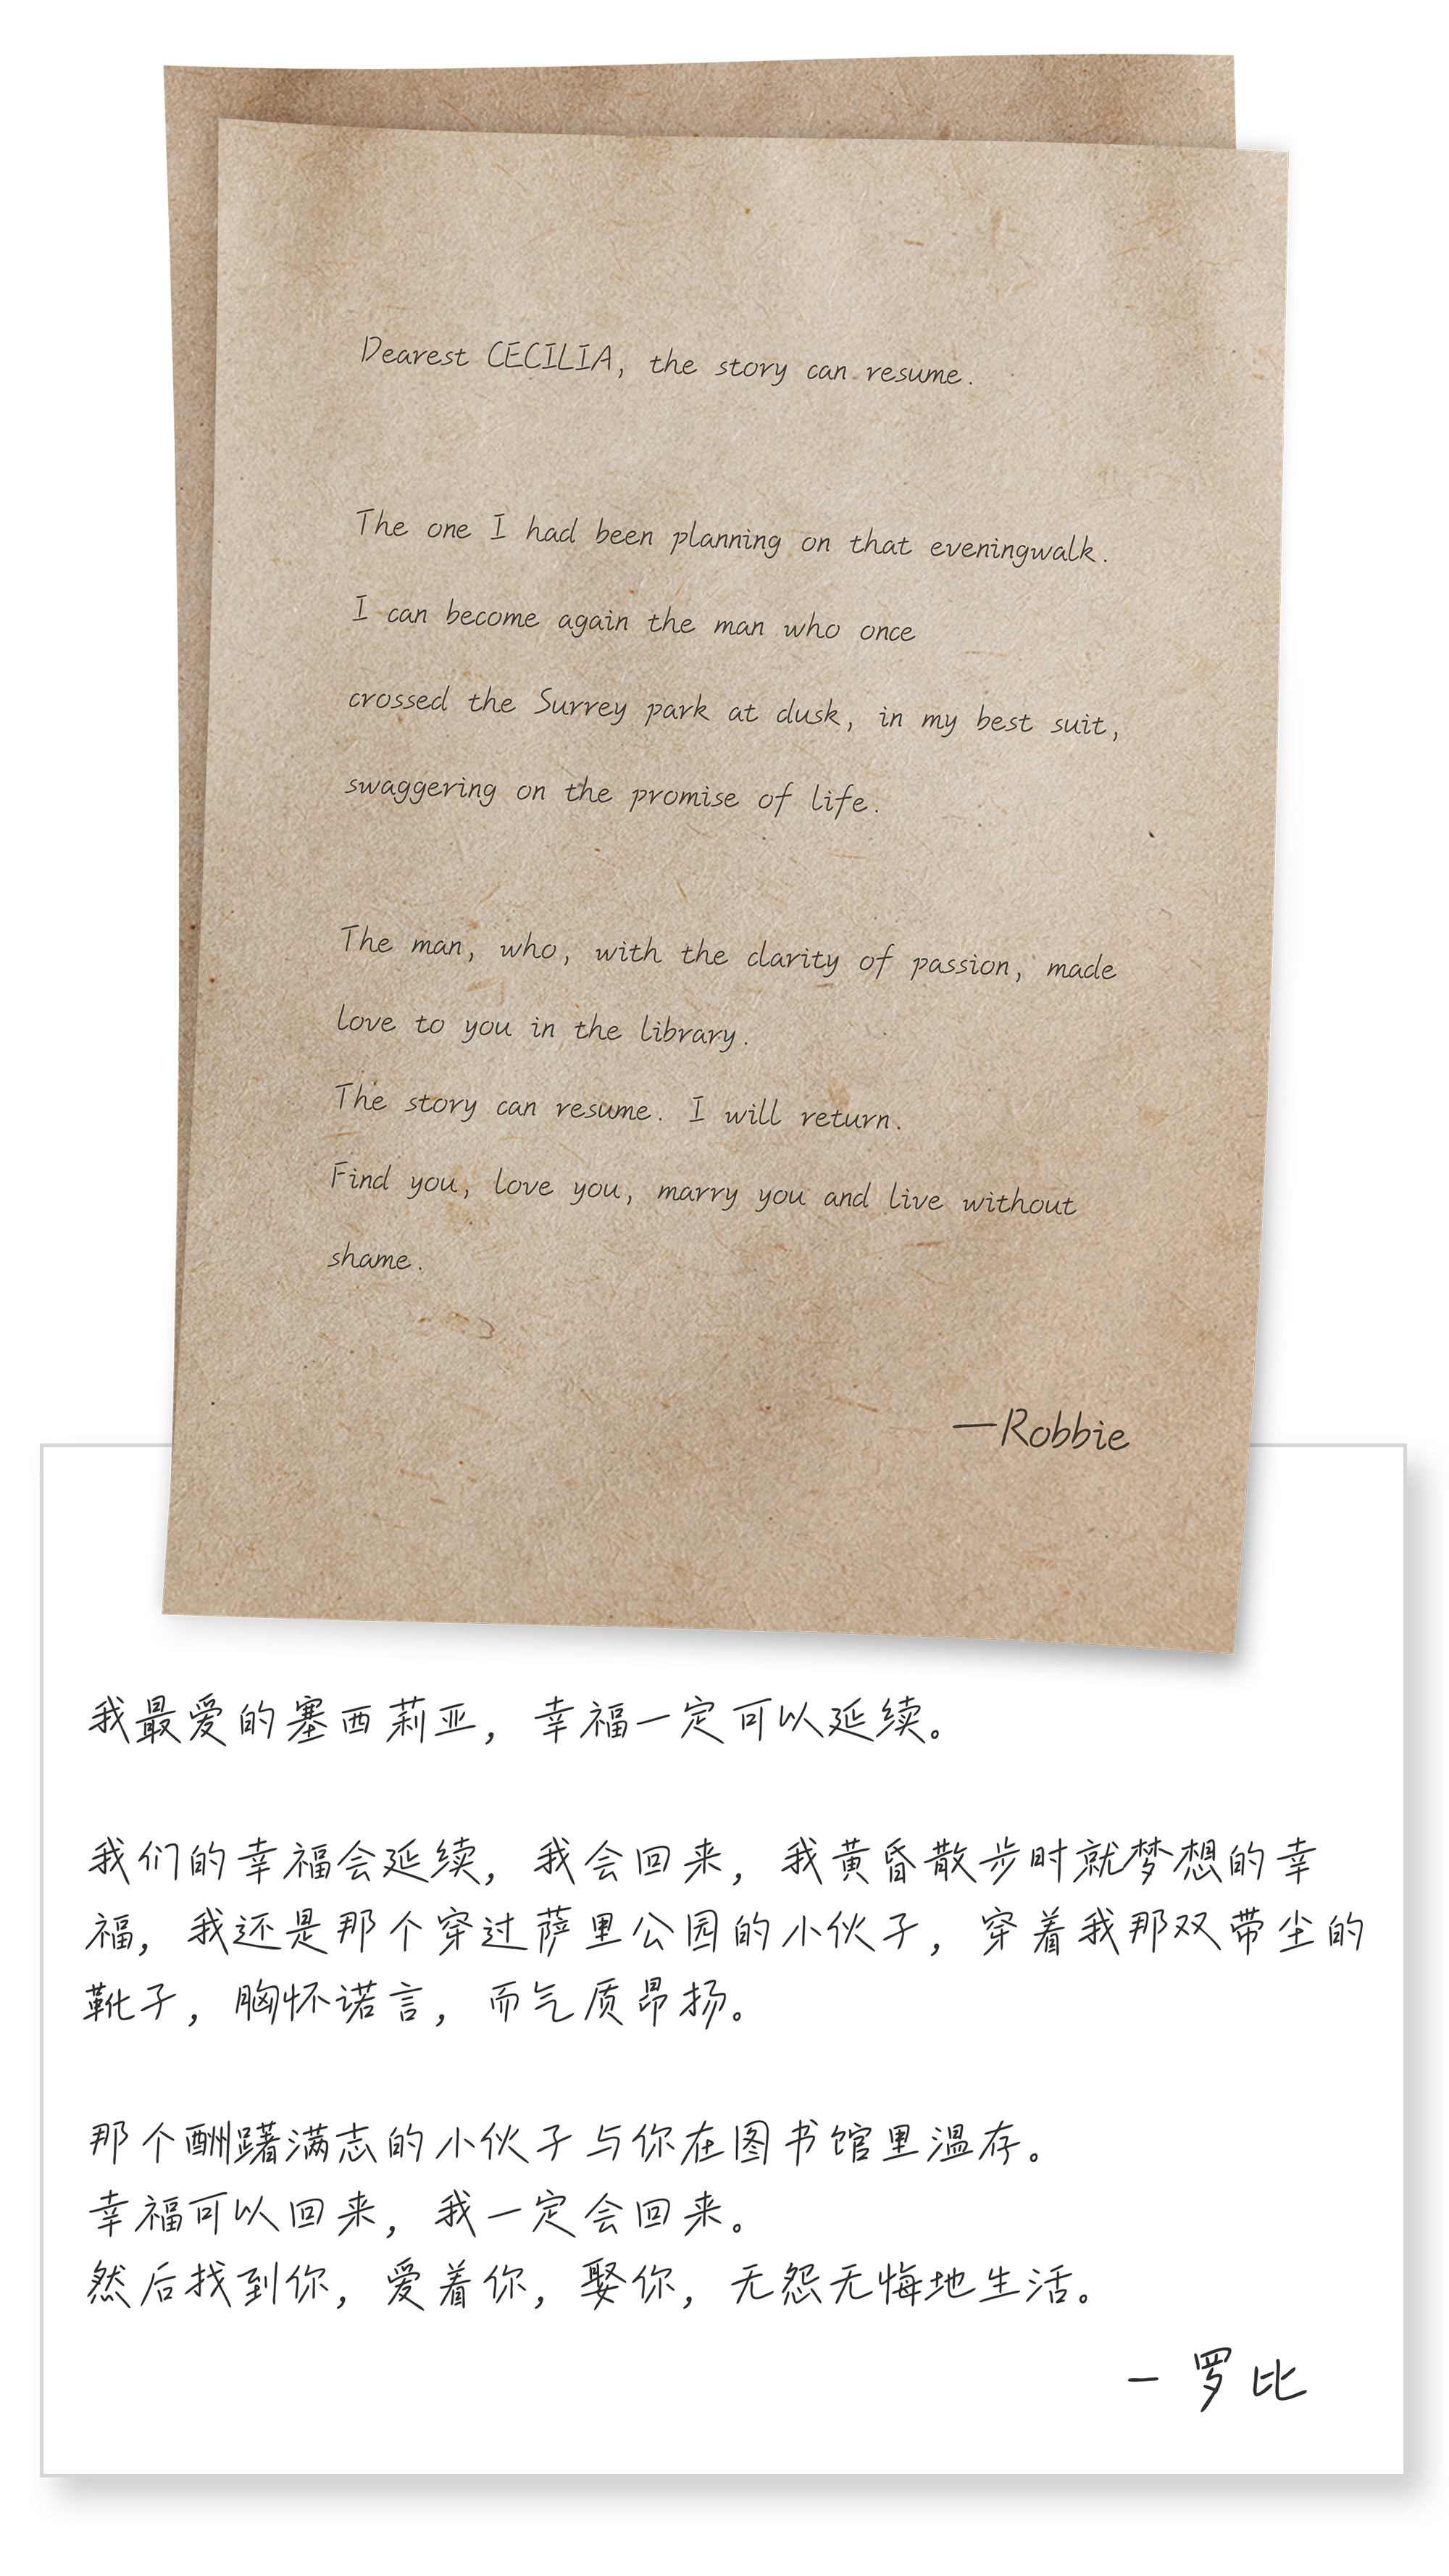 Dearest CECILIA, the story can resume.
The one I had been planning on that eveningwalk.
I can become again the man who once
crossed the Surrey park at dusk, in my best suit,
swaggering on the promise of life.
The man, who, with the clarity of passion, made
love to you in the library.
The story can resume. I will return.
Find you, love you, marry you and live without
shame.
—Robbie
我最爱的塞西莉亚，幸福一定可以延续。
我们的幸福会延续，我会回来，我黄昏散步时就梦想的幸
福，我还是那个穿过萨里公园的小伙子，穿着我那双带尘的
靴子，胸怀诺言，而气质昂扬。
那个酬躇满志的小伙子与你在图书馆里温存。
幸福可以回来，我一定会回来。
然后找到你，爱着你，娶你，无怨无悔地生活。
— 罗比